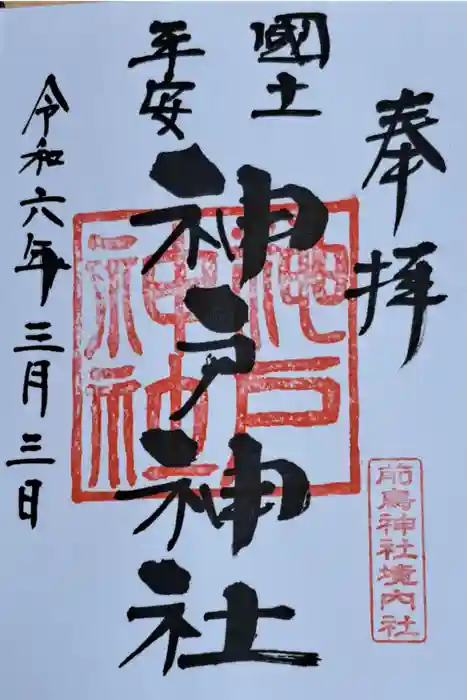 奉拝
國土
平安
神戸神社
令和六年三月三日
神戸
神社
前鳥神社境内社